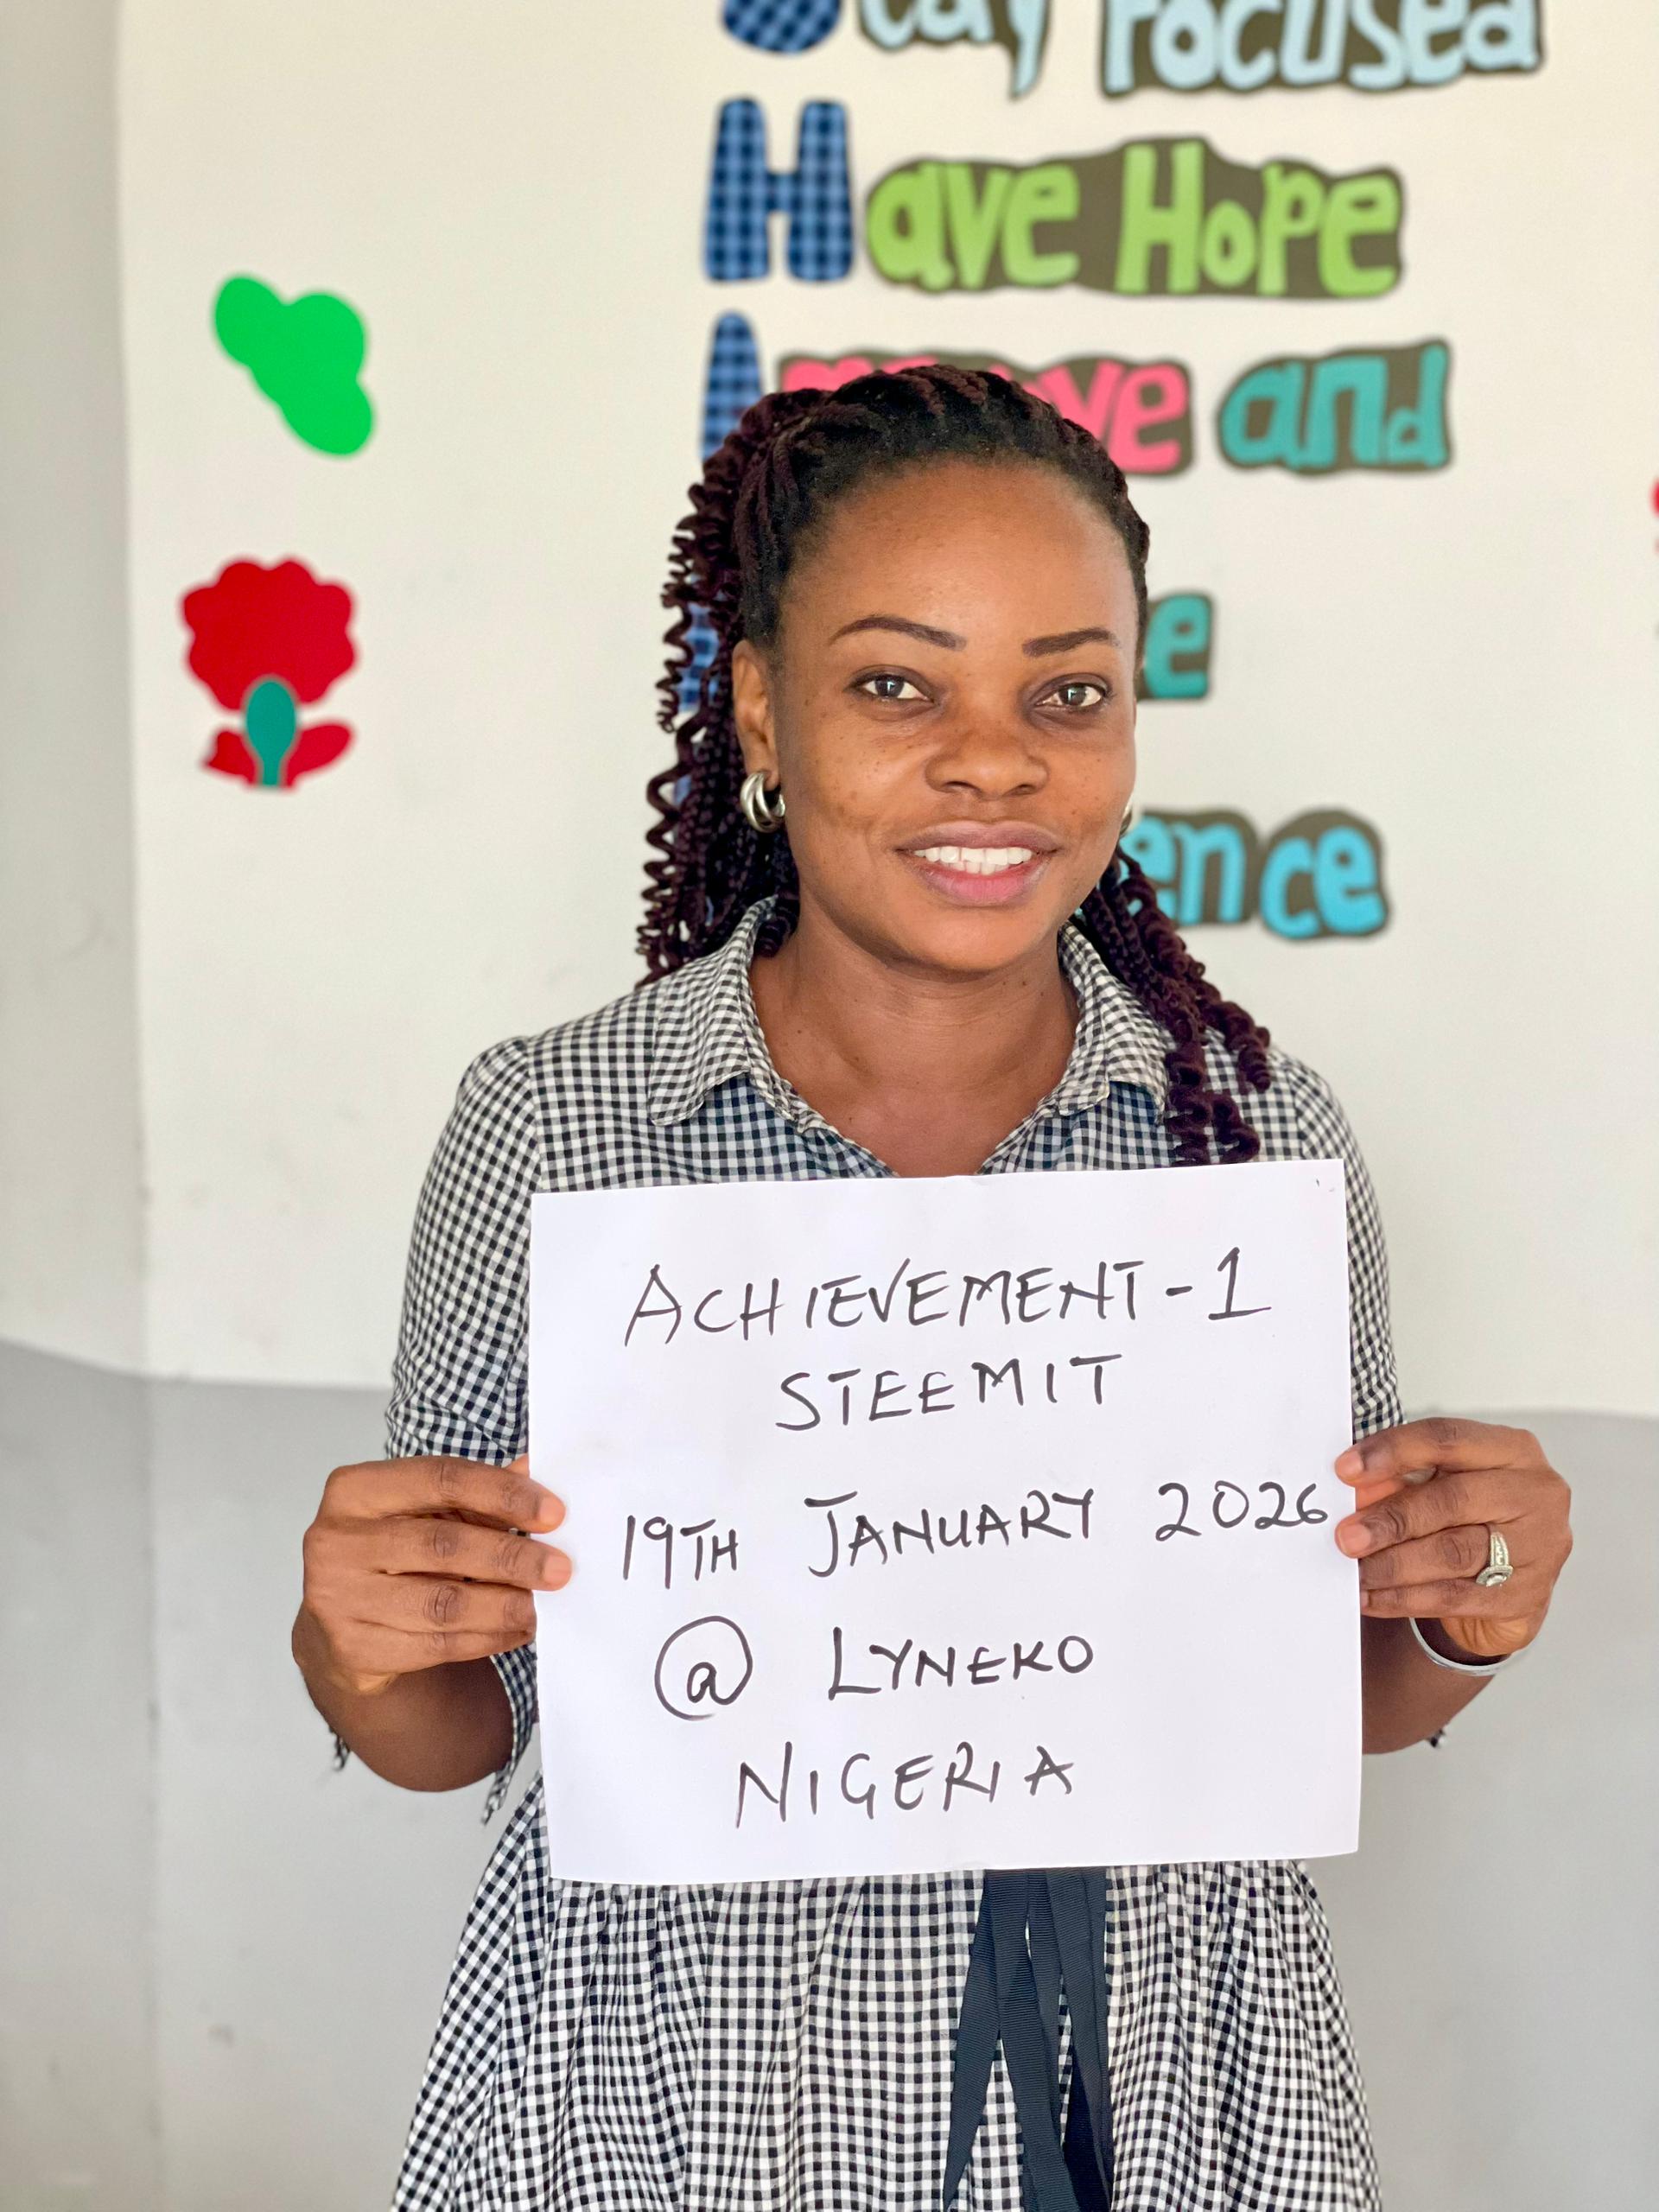 Stay Focused
Have Hope
and
ACHIEVEMENT-1
STEEMIT
19TH JANUARY 2026
@ LYNEKO
NIGERIA